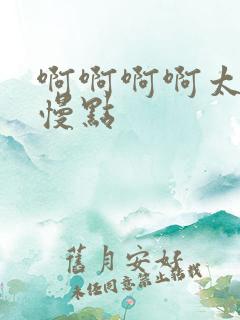 啊啊啊啊太
慢點
舊月安好
未經同意禁止轉載